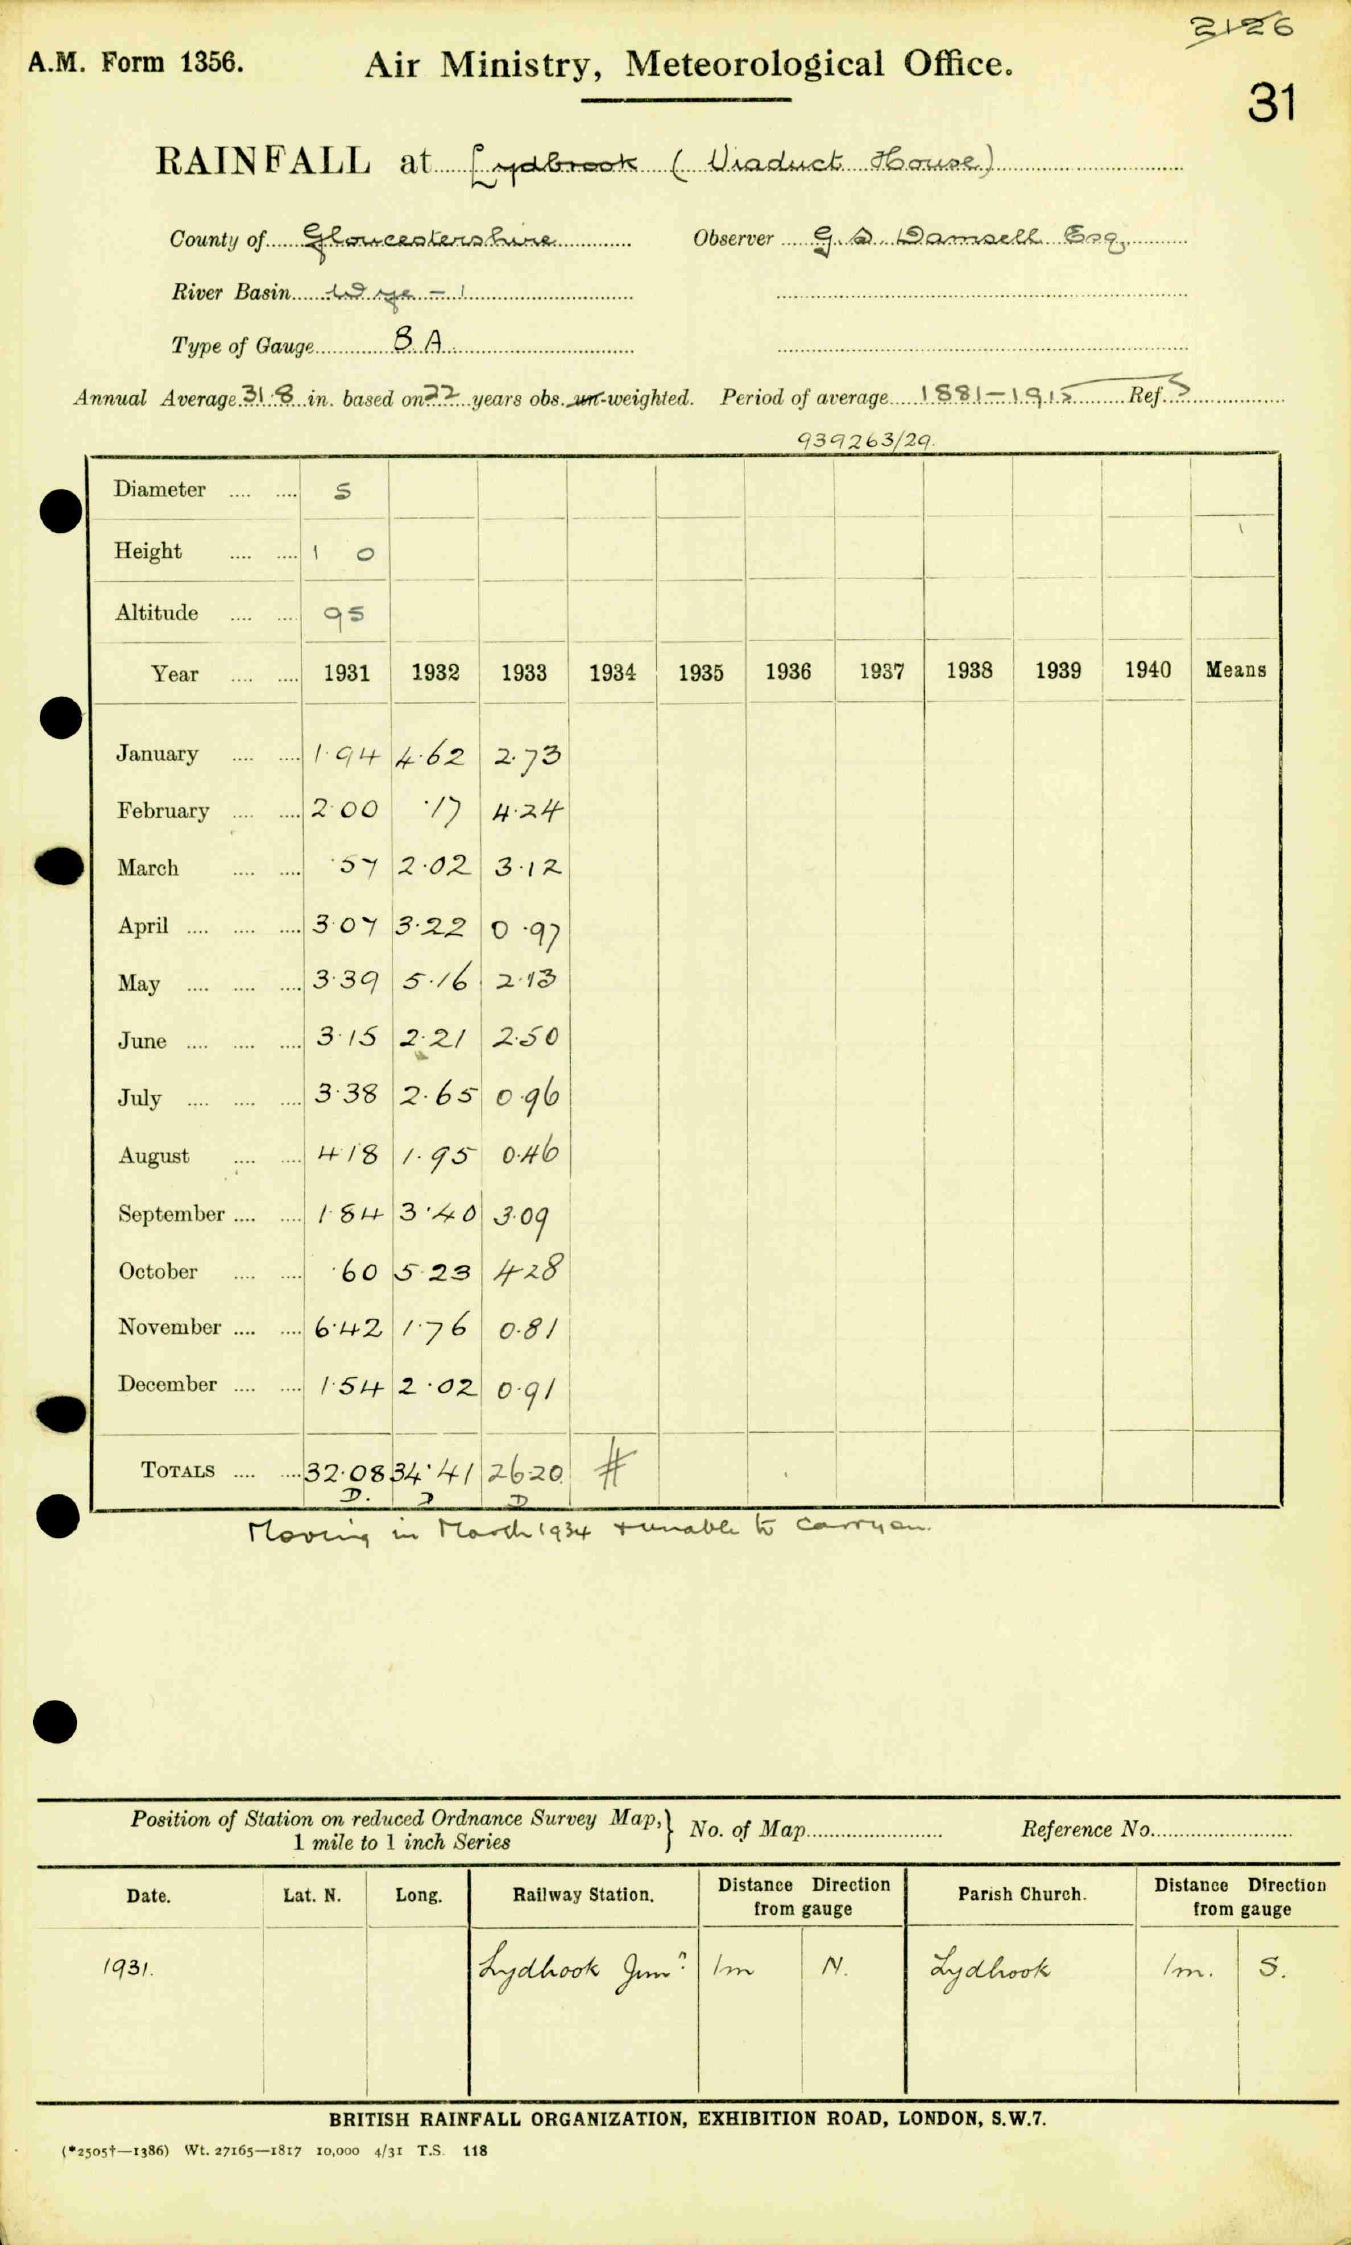 2126
A.M. Form 1356. Air Ministry, Meteorological Office.
31
RAINFALL at Lydbrook (Viaduct House)
County of Gloucestershire Observer G. D. Damsell Esq.
River Basin Wye - 1
Type of Gauge B A
Annual Average 31.8 in. based on 22 years obs. un-weighted. Period of average 1881-1915 Ref. S
939263/29.
Diameter .... .... 5
Height .... .... 1 0
Altitude .... .... 95
Year .... .... 1931 1932 1933 1934 1935 1936 1937 1938 1939 1940 Means
January .... .... 1.94 4.62 2.73
February .... .... 2.00 .17 4.24
March .... .... .57 2.02 3.12
April .... .... .... 3.07 3.22 0.97
May .... .... .... 3.39 5.16 2.13
June .... .... .... 3.15 2.21 2.50
July .... .... .... 3.38 2.65 0.96
August .... .... 4.18 1.95 0.46
September .... .... 1.84 3.40 3.09
October .... .... .60 5.23 4.28
November .... .... 6.42 1.76 0.81
December .... .... 1.54 2.02 0.91
TOTALS .... .... 32.08 34.41 26.20 #
D. D D
Moving in March 1934 & unable to carry on.
Position of Station on reduced Ordnance Survey Map, 1 mile to 1 inch Series } No. of Map Reference No.
Date. Lat. N. Long. Railway Station. Distance Direction from gauge Parish Church. Distance Direction from gauge
1931. Lydbrook Junn 1m N. Lydbrook 1m. S.
BRITISH RAINFALL ORGANIZATION, EXHIBITION ROAD, LONDON, S.W.7.
(*2505†—1386) Wt. 27165—1817 10,000 4/31 T.S. 118